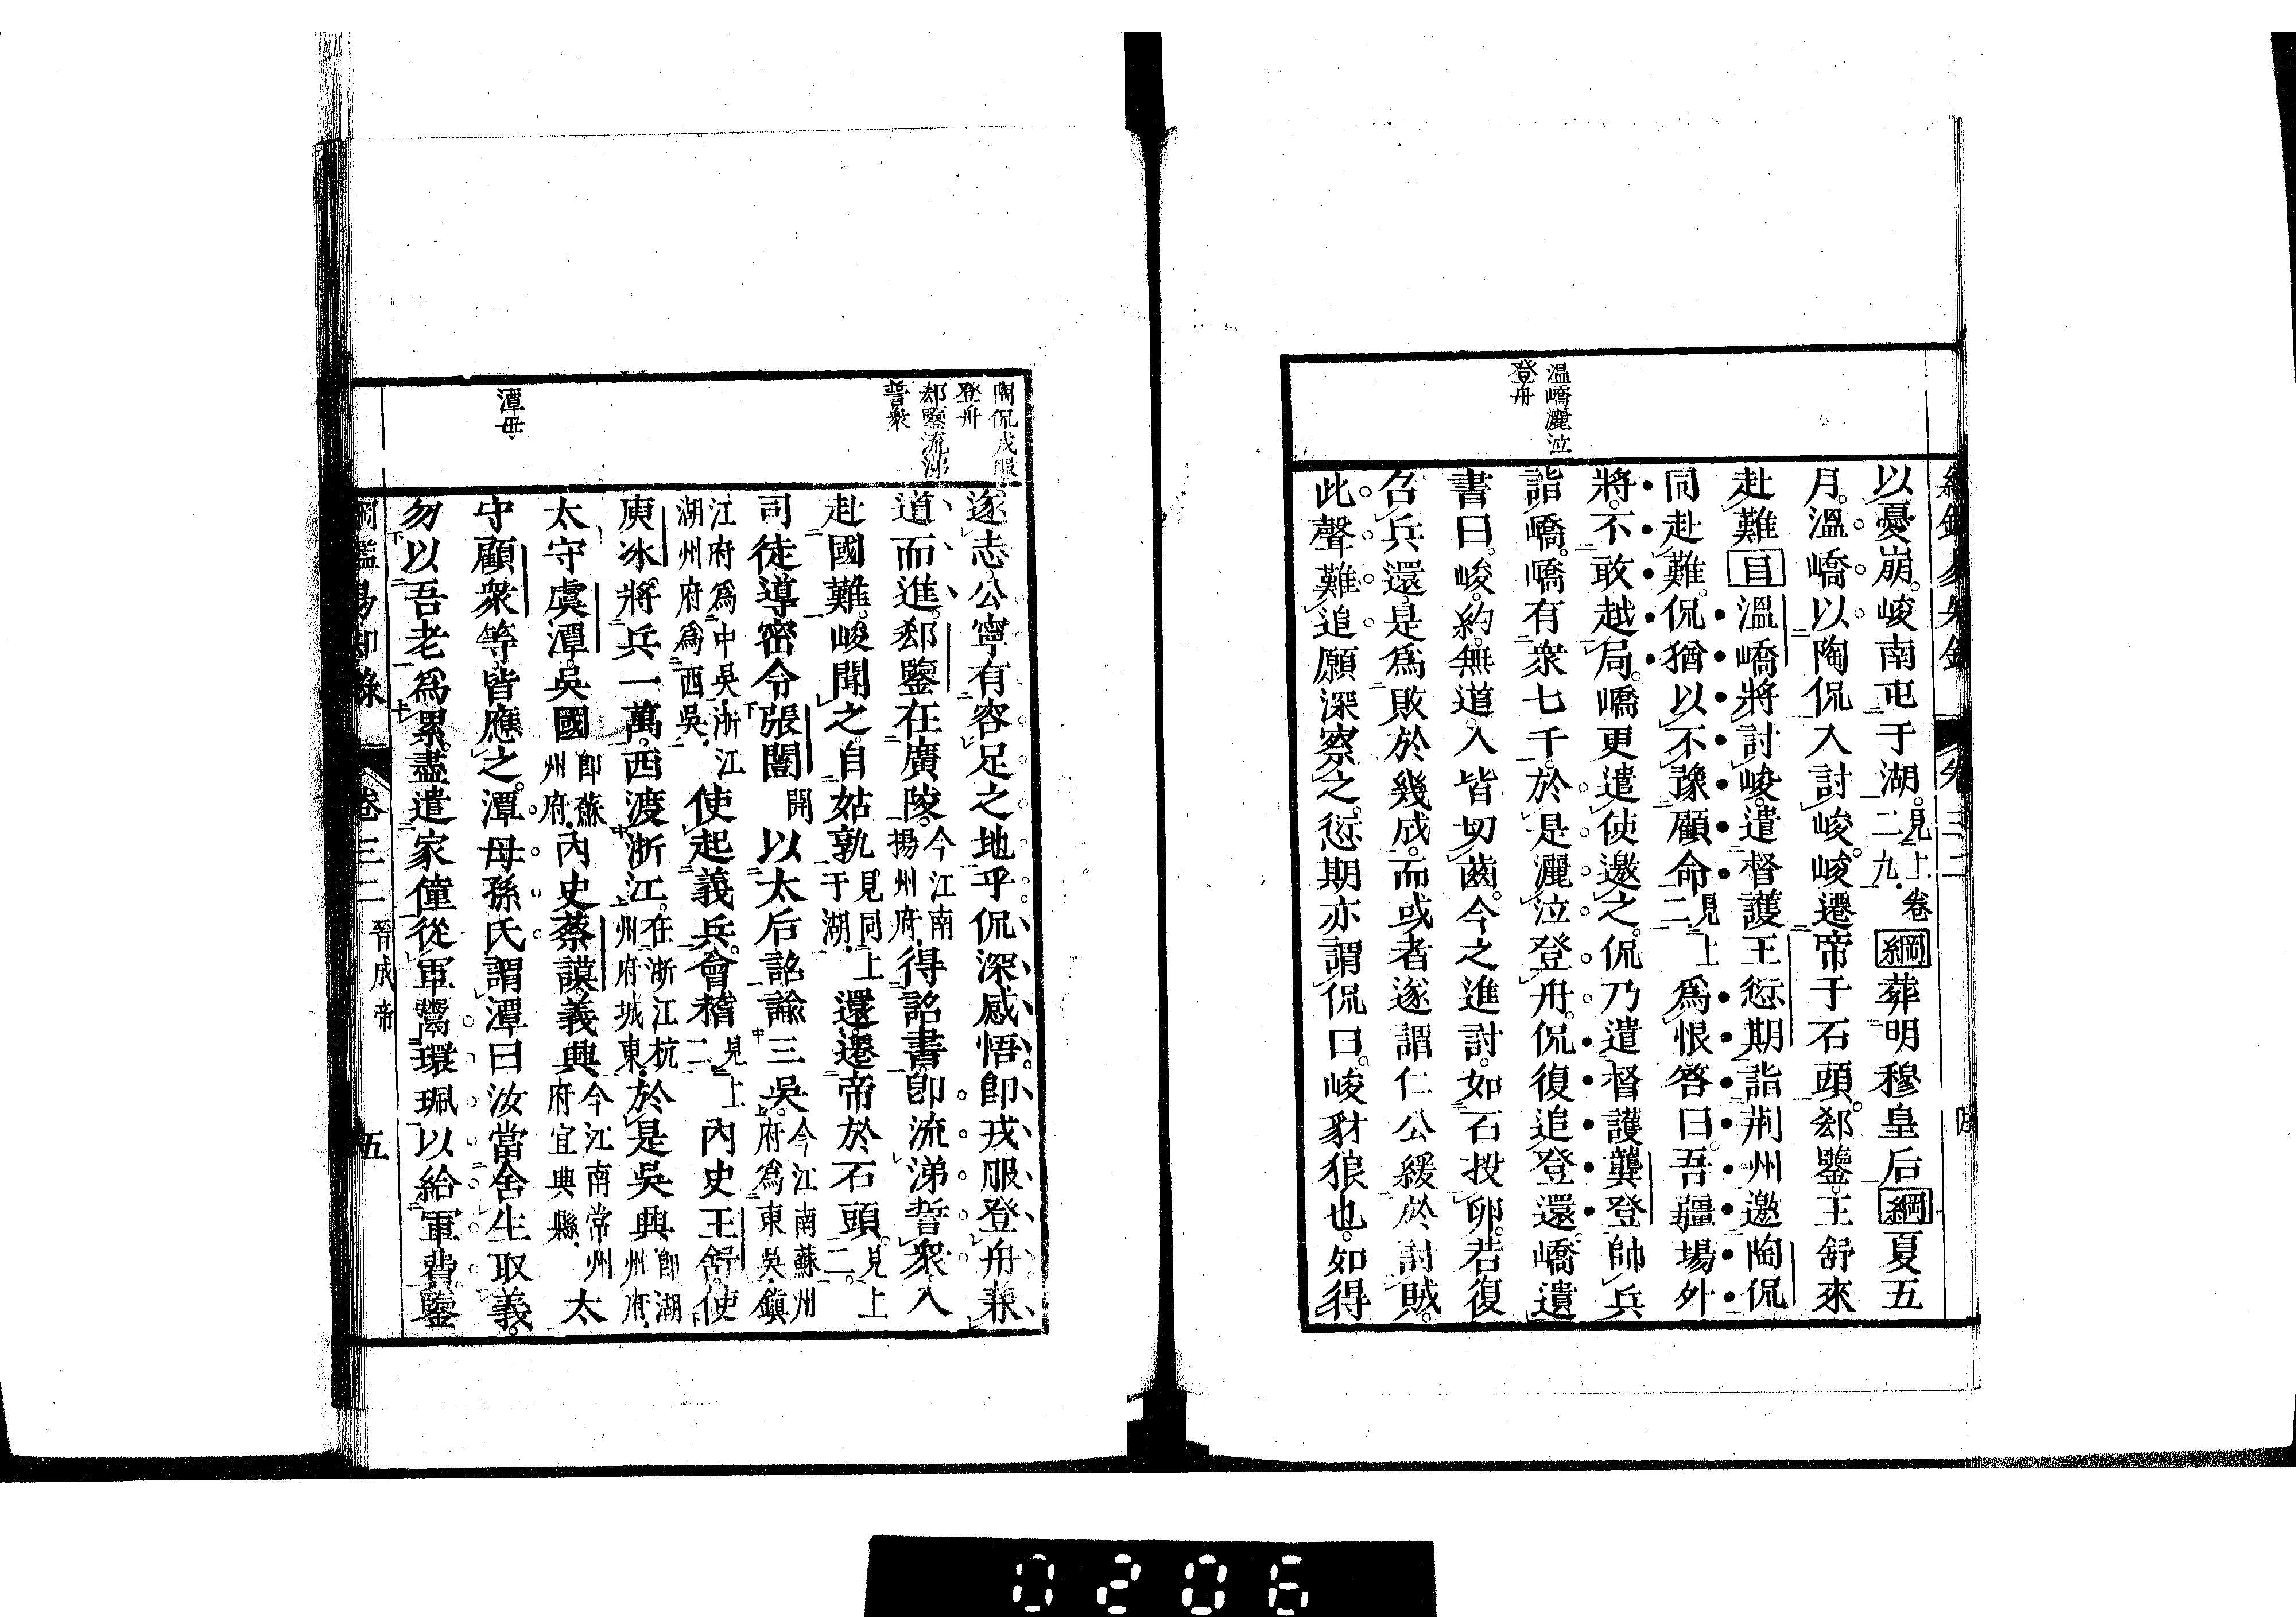 以憂崩。峻南屯于湖。見上卷二九．綱葬明穆皇后綱夏五
月。溫嶠以陶侃入討峻。峻遷帝于石頭。郄鑒。王舒來
赴難目溫嶠將討峻。遣督護王愆期。詣荆州邀陶侃
同赴難。侃猶以不豫顧命見上二．爲恨。答曰。吾疆場外
將。不敢越局。嶠更遣使邀之。侃乃遣督護龔登帥兵
詣嶠。嶠有衆七千。於是灑泣登舟。侃復追登還。嶠遺
書曰。峻。約。無道。人皆切齒。今之進討。如石投卵。若復
召兵還。是爲敗於幾成。而或者遂謂仁公緩於討賊。
此聲難追。願深察之。愆期亦謂侃曰。峻豺狼也。如得
溫嶠灑泣
登舟
卷三二
遂志。公寧有容足之地乎。侃深感悟。卽戎服登舟。兼
道而進。郄鑒在廣陵。今江南揚州府．得詔書。卽流涕誓衆。入
赴國難。峻聞之。自姑孰見同上于湖．還。遷帝於石頭。見上二。
司徒導密令張闓開以太后詔諭三吳。今江南蘇州府爲東吳．鎮
江府爲中吳．浙江湖州府爲西吳．使起義兵。會稽見上二．內史王舒。使
庾冰。將兵一萬。西渡浙江。在浙江杭州府城東．於是吳興卽湖州府．
太守虞潭。吳國卽蘇州府．內史蔡謨。義興今江南常州府宜興縣．太
守顧衆等。皆應之。潭母孫氏謂潭曰。汝當舍生取義。
勿以吾老爲累。盡遣家僮從軍。鬻環珮以給軍費。鑒
陶侃戎服
登舟
郄鑒流涕
誓衆
潭母．
綱鑑易知錄 卷三二 晉成帝 五
0206